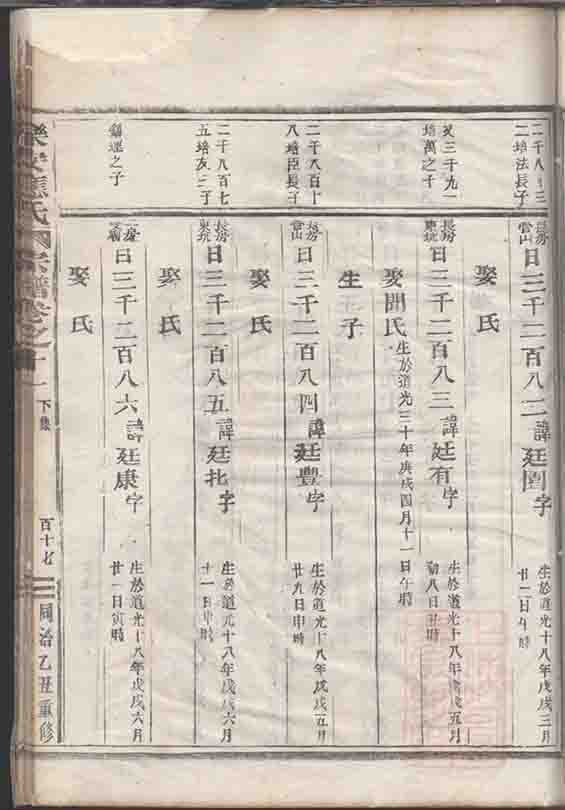 二培法長子
長房
曰三千二百八二諱廷園字
生於道光十八年戊戌三月
廿二日午時
娶氏
培萬之子
長房
東坑
曰三千二百八三諱廷有字
生於道光十八年戊戌五月
初八日丑時
娶開氏
生於道光三十年庚戌四月十一日午時
生子
二千八百十
八培臣長子
長房
曰三千二百八四諱廷豐字
生於道光十八年戊戌五月
廿九日申時
娶氏
二千八百七
五培友三子
長房
東坑
曰三千二百八五諱廷字
生於道光十八年戊戌六月
十一日申時
娶氏
之子
曰三千二百八六諱廷康字
生於道光十八年戊戌六月
廿一日寅時
娶氏
應氏宗譜卷之十一
下集
百十七
同治乙丑重修